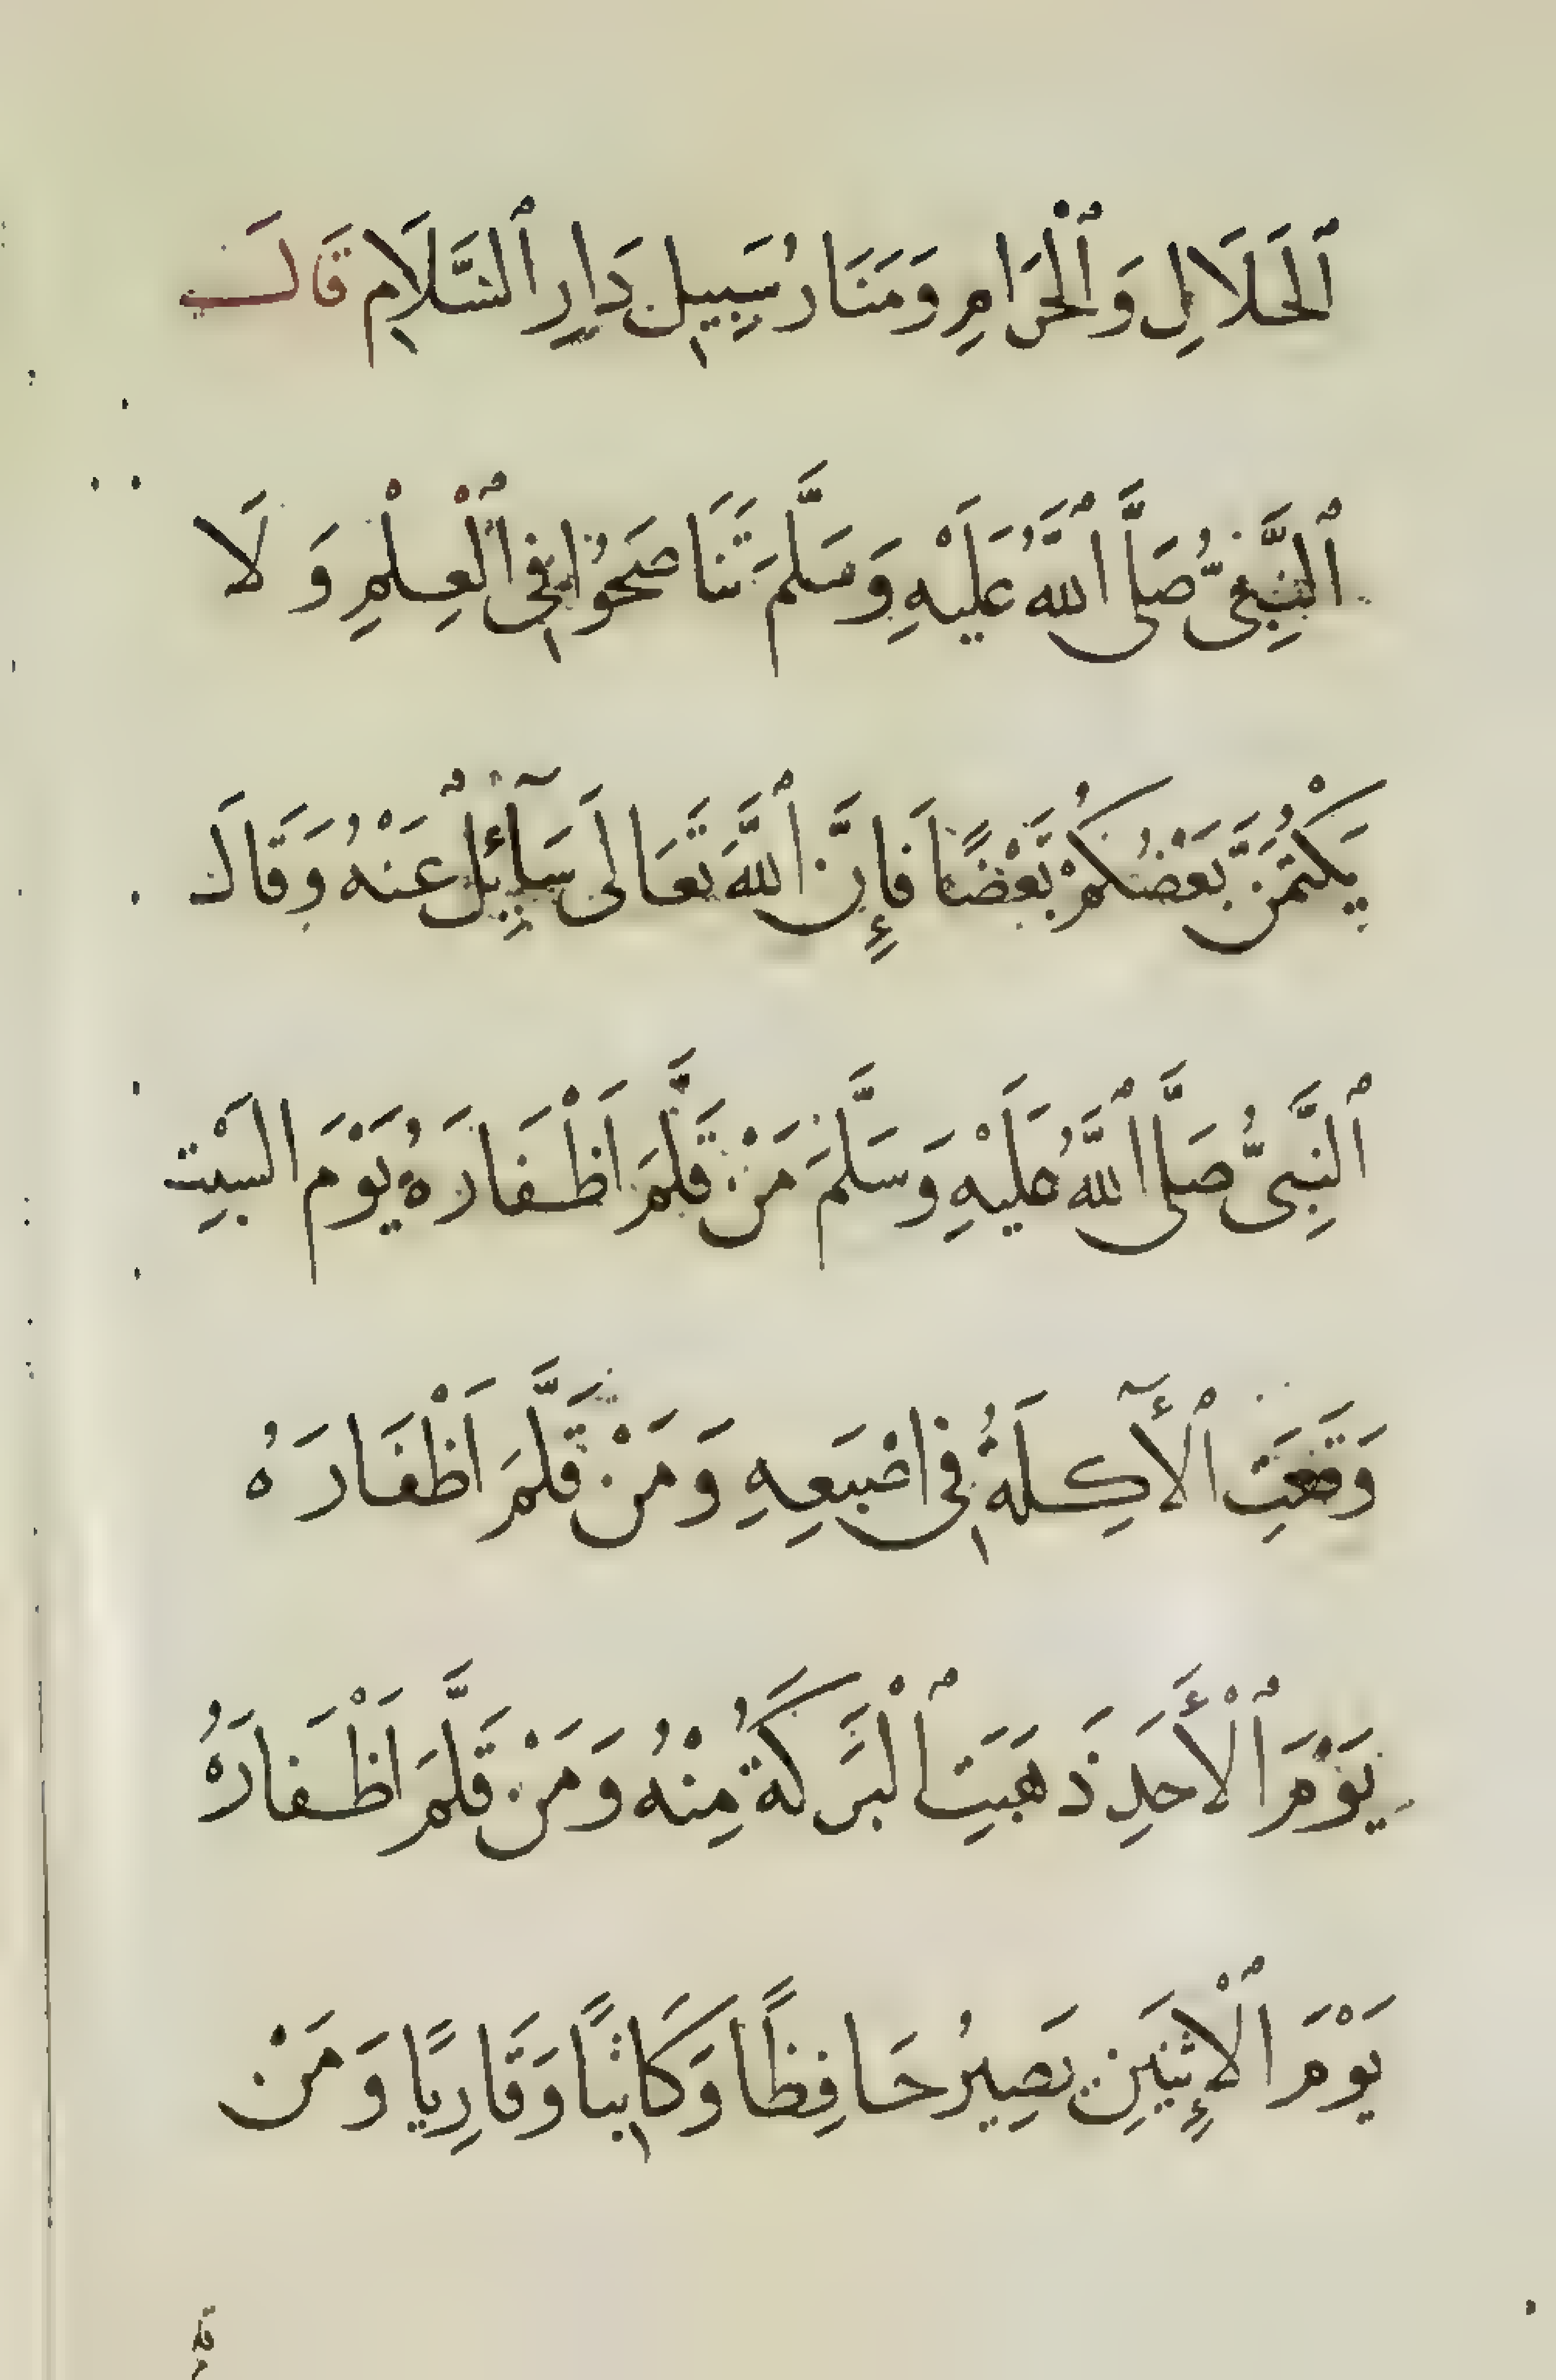 ٱلْحَلَالِ وَٱلْحَرَامِ وَمَنَارُ سَبِيلِ دَارِ ٱلسَّلَامِ قَالَ
ٱلنَّبِيُّ صَلَّى ٱللَّهُ عَلَيْهِ وَسَلَّمَ تَنَاصَحُوا فِي ٱلْعِلْمِ وَ لَا
يَكْتُمَنَّ بَعْضُكُمْ بَعْضًا فَإِنَّ ٱللَّهَ تَعَالَى سَآئِلٌ عَنْهُ وَقَالَ
ٱلنَّبِيُّ صَلَّى ٱللَّهُ عَلَيْهِ وَسَلَّمَ مَنْ قَلَّمَ اَظْفَارَهُ يَوْمَ السَّبْتِ
وَقَعَتِ ٱلْأٓكِلَةُ فِي اصْبَعِهِ وَمَنْ قَلَّمَ اَظْفَارَهُ
يَوْمَ ٱلْأَحَدِ ذَهَبَتِ ٱلْبَرَكَةُ مِنْهُ وَمَنْ قَلَّمَ اَظْفَارَهُ
يَوْمَ ٱلْإِثْنَيْنِ يَصِيرُ حَافِظًا وَكَاتِبًا وَقَارِيًا وَمَنْ
قلم